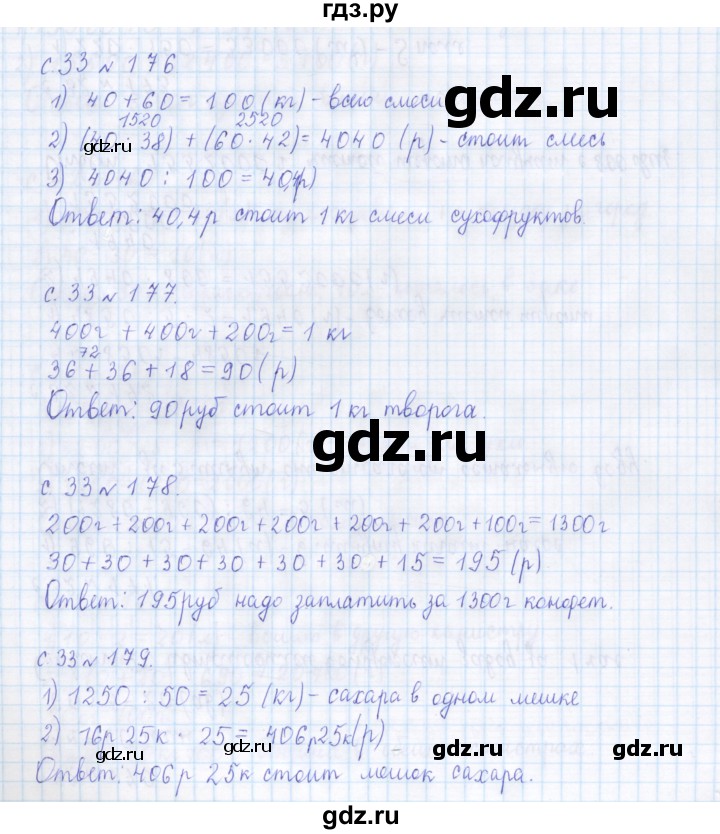 гдз.ру
с. 33 № 176
1) 40 + 60 = 100 (кг) - всего смеси
1520 2520
2) (40 · 38) + (60 · 42) = 4040 (р) - стоит смесь
gdz.ru
3) 4040 : 100 = 40,4(р)
Ответ: 40,4р стоит 1 кг смеси сухофруктов.
с. 33 № 177.
400г + 400г + 200г = 1 кг
72
36 + 36 + 18 = 90 (р)
Ответ: 90 руб стоит 1 кг творога.
gdz.ru
с. 33 № 178.
200г + 200г + 200г + 200г + 200г + 200г + 100г = 1300г
30 + 30 + 30 + 30 + 30 + 30 + 15 = 195 (р)
Ответ: 195руб надо заплатить за 1300г конфет.
с. 33 № 179.
1) 1250 : 50 = 25 (кг) - сахара в одном мешке
2) 16р 25к · 25 = 406р25к(р)
gdz.ru gdz.ru gdz.ru
Ответ: 406р 25к стоит мешок сахара.
gdz.ru